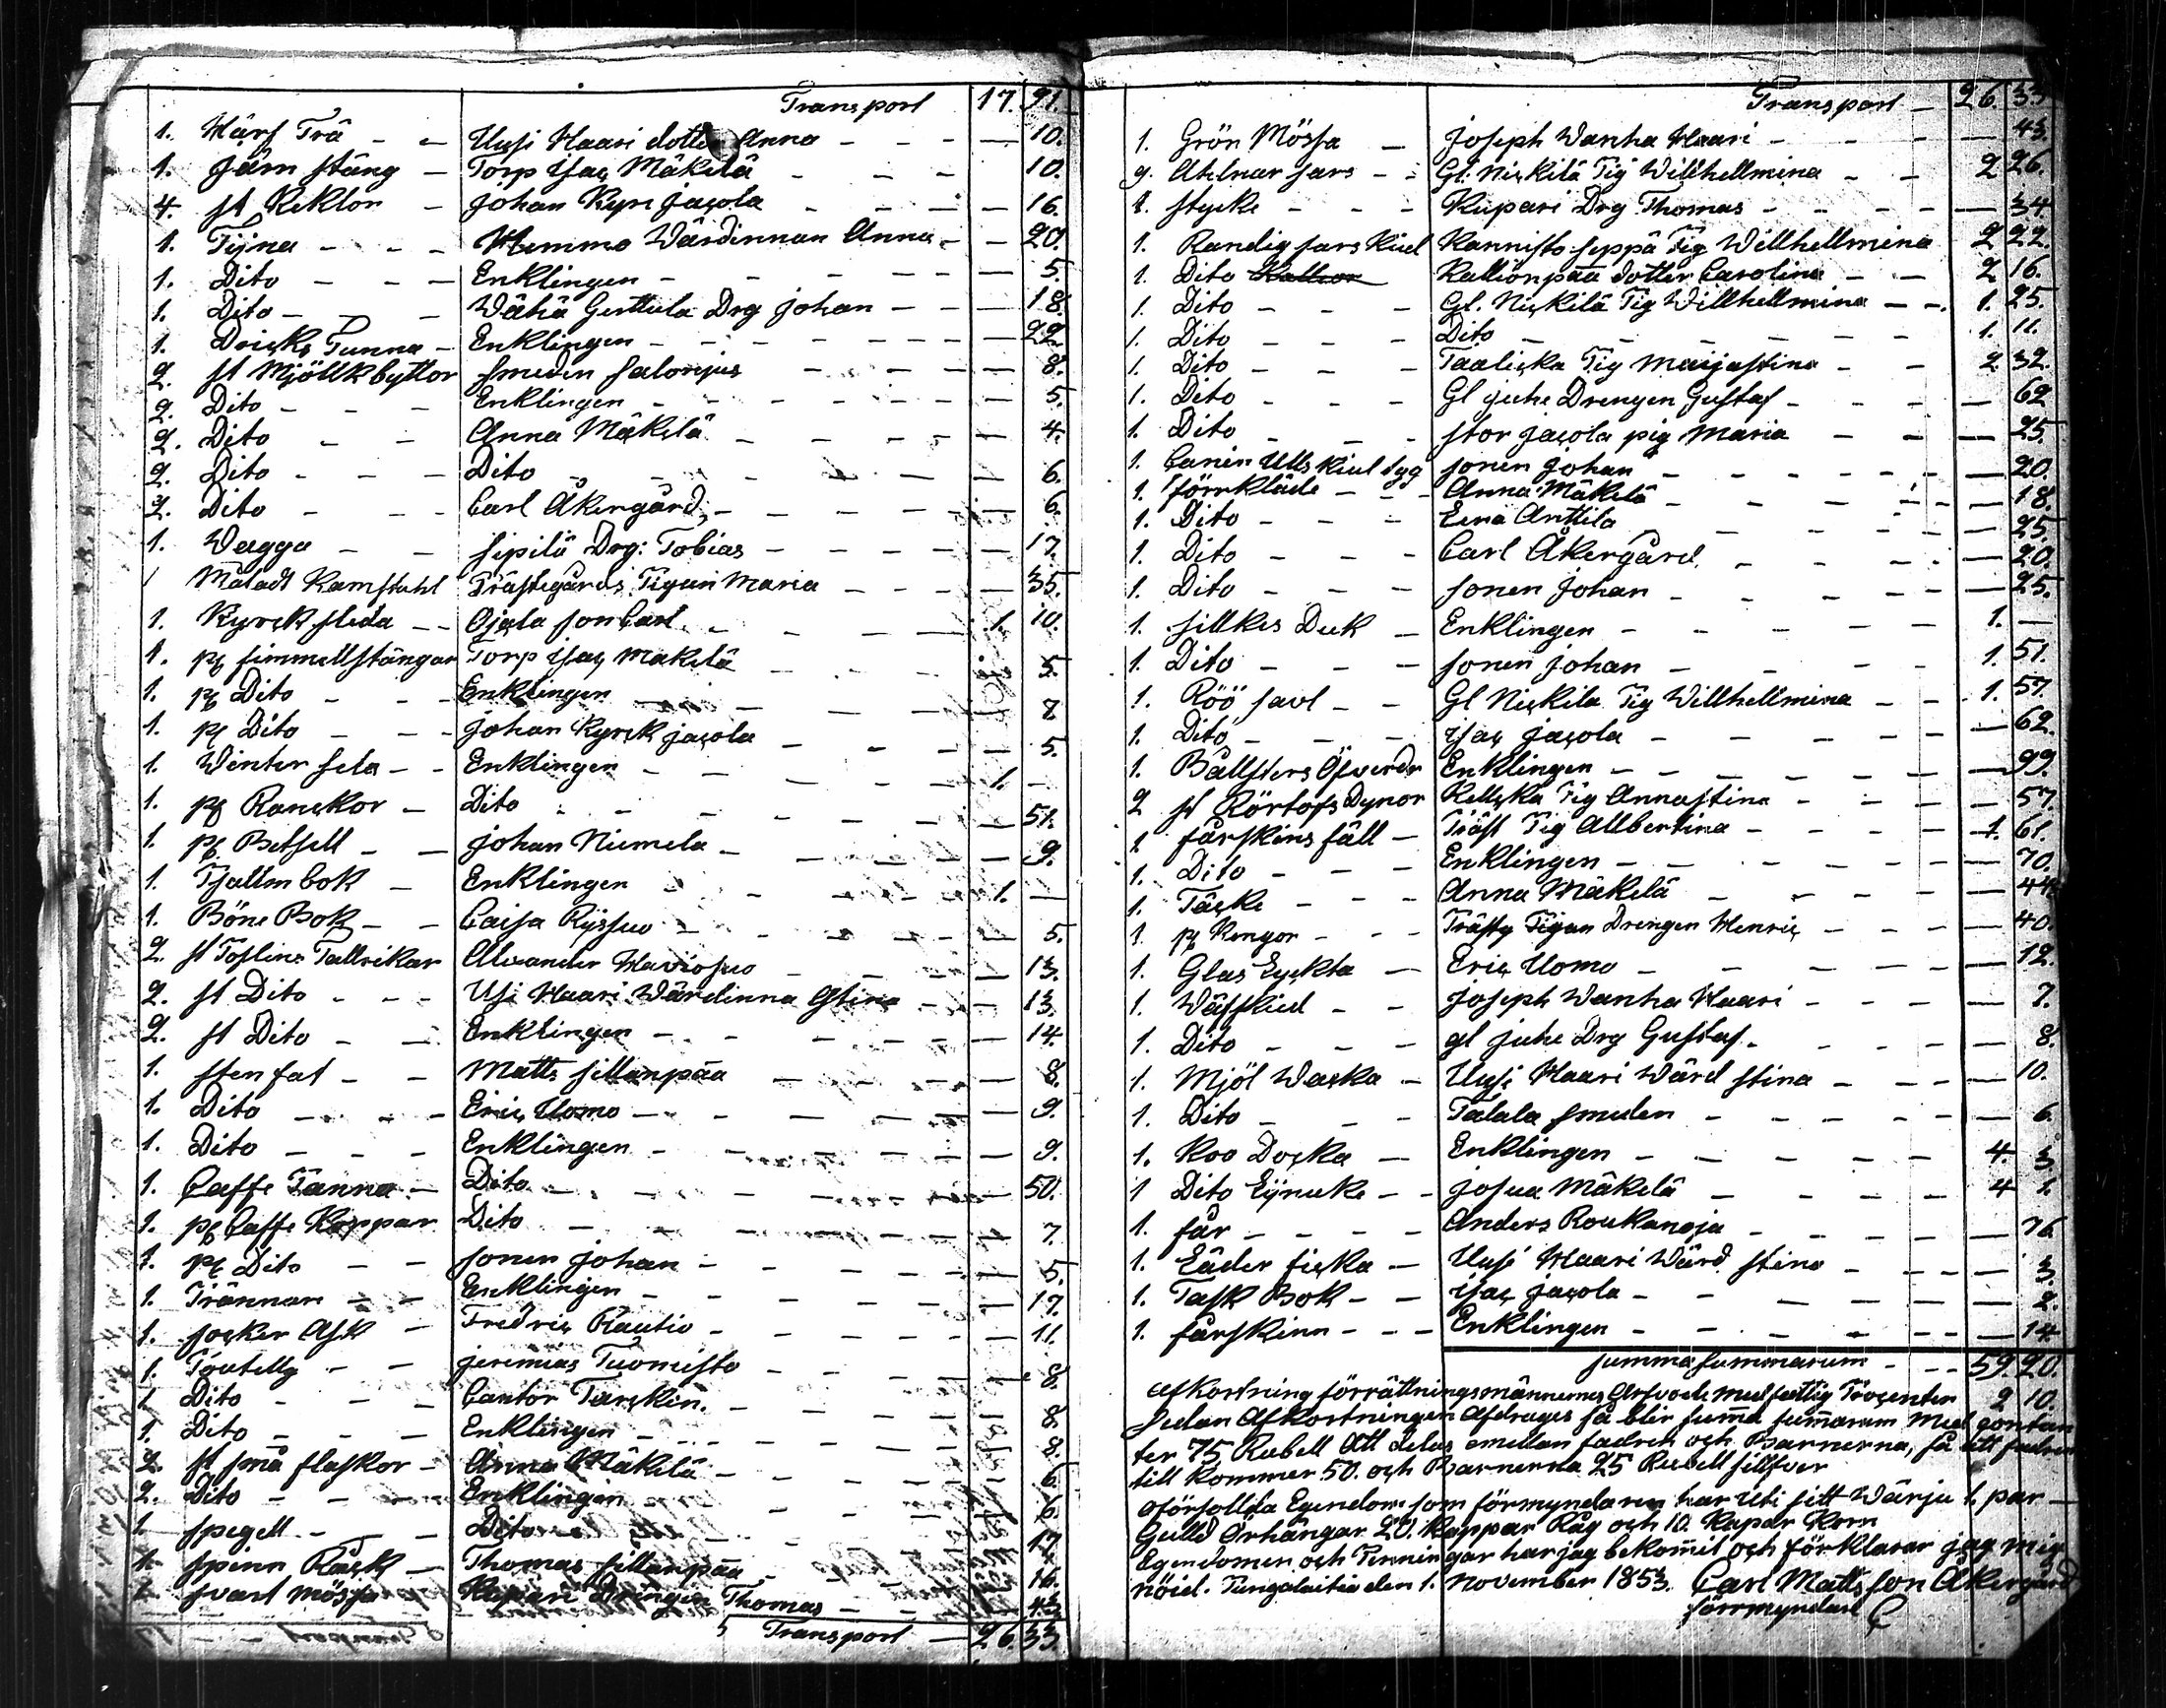 Transport 17. 91.
1. Härf Trä - - Uusi Haari dotter Anna - - - 10.
1. Järn stång - Torp Isac Mäkelä - - - 10.
4. st Keklor - Johan Kyrc Jacola - - - 16.
1. Tijna - - - Hemmo Wärdinnan Anna - - 20.
1. Dito - - - Enklingen - - - 5.
1. Dito - - - Wähä Gerttula Drg Johan - - - 18.
1. Dricks Tunna - Enklingen - - - 22.
2. st Mjöllk byttor smeden Salonjus - - - 8.
2. Dito - - - Enklingen - - - 5.
2. Dito - - - Anna Mäkelä - - - 4.
2. Dito - - - Dito - - - 6.
2. Dito - - - Carl Åkergård - - - 6.
1. Wagga - - Sipilä Drg: Tobias - - - 17.
1 Måladt Kamstuhl Prästegårds Pigan Maria - - - 35.
1. Kyrck släda - - Ojala son Carl - - - 1. 10.
1. pr simmellstängar Torp Isac Mäkelä - - - 5.
1. pr Dito - - - Enklingen - - - 7
1. pr Dito - - - Johan Kyrck Jacola - - - 5.
1. Winter Sela - - Enklingen - - - 1. -
1. pr Ranckor - Dito - - - 51.
1. pr Betsell - - Johan Niemela - - - 9.
1. Psallm bok - Enklingen - - - 1. -
1. Böne Bok - - Caisa Ryssuo - - - 5.
2. st Poslins Tallrikar Allexander Haviosuo - - - 13.
2. st Dito - - - Usi Haari Wärdinna Stina - - - 13.
2. st Dito - - Enklingen - - - 14.
1. sten fat - - Matts Sillanpää - - - 8.
1. Dito - - - Eric Uomo - - - 9.
1. Dito - - - Enklingen - - - 9.
1. Caffe Panna - Dito - - - 50.
1. pr Caffe Koppar Dito - - - 7.
1. pr Dito - - sonen Johan - - - 5.
1. - - Enklingen - - - 17.
1. socker Ask - Fredric Rautio - - - 11.
1. - - Jeremias Tuomisto - - - 8.
1 Dito - - - Cantor - - - 8.
1. Dito - - - Enklingen - - - 8.
2. st små flaskor - Anna Mäkelä - - - 6.
2. Dito - - - Enklingen - - - 6.
1. spegell - - Dito - - - 17.
1. spinn Råck - Thomas Sillanpää - - - 16.
1. svart mössa Kupari Drängen Thomas - - - 43.
Transport - 26 33.
Transport - 26. 33
1. Grön Mössa - Joseph Wanha Haari - - - 43.
9. Allnar sars - - Gl. Nickilä Pig Willhellmina - - 2 26.
1. stycke - - - Kupari Drg Thomas - - - 34
1. Randig sars Kiol Kannisto Seppä Pig Willhellmina 2 22.
1. Dito Kallion Kallionpää dotter Carolina - - 2 16.
1. Dito - - - Gl. Nickilä Pig Willhellmina - - 1. 25.
1. Dito - - - Dito - - - 1. 11.
1. Dito - - - Taalicka Pig Maijastina - - 2. 32.
1. Dito - - - Gl Juhe Drengen Gustaf - - - 62
1. Dito - - - stor Jacola pig Maria - - - 25.
1. Ulls Kiol tyg sonen Johan - - - 20.
1. förrkläde - - - Anna Mäkelä - - - 18.
1. Dito - - - Anttila - - - 25.
1. Dito - - - Carl Åkergård. - - - 20.
1. Dito - - - sonen Johan - - - 25.
1. sillkes Duk - Enklingen - - - 1. -
1. Dito - - - sonen Johan - - - 1. 51.
1. Röö savl - - Gl Nickila Pig Willhellmina - - 1. 57.
1. Dito - - - Isac Jacola - - - 62.
1. Bällsters Öfverdr Enklingen - - - 99.
2 st Dynor Pig Annastina - - - 57.
1. fårskins fäll - Präst Pig Allbertina - - - 1. 61.
1. Dito - - - Enklingen - - - 70.
1. Täcke - - - Anna Mäkelä - - - 44.
1. pr Kengor - - - Drengen Henric - - - 40.
1. Glas Lyckta - Eric Uomo - - - 12.
1. Wäfskied - - Joseph Wanha Haari - - - 7.
1. Dito - - - gl juhe Drg Gustaf. - - - 8.
1. Mjöl Wacka - Uusi Haari Wärd Stina - - - 10.
1. Dito - - - Talala smeden - - - 6.
1. Koo Docka - Enklingen - - - 4. 3
1 Dito - - Josua Mäkelä - - - 4 1.
1. får - - - Anders Roukanoja - - - 76
1. Läder ficka - Uusi Haari Wärd. Stina - - - 3.
1. Task Bok - - Isac Jacola - - - 2.
1. fårskinn - - - Enklingen - - - 14
summa summarum - - - 59. 20.
afkortning förrättningsmännernes Arfvode med fattig Procenten 2 10.
sedan Afkortningen Afdrages så blir summa summarum med contan
ter 75 Rubell Att delas emellan fadren och Barnerna, så att fadren
till kommer 50. och Barnerna 25 Rubell sillfver
oförsollda Egendom som förmyndaren har uti sitt Wärju 1. par -
Gulld Örhängar 20. Kappar Råg och 10. Kapar Korn
Egendomen och Penningar har jag bekomit och förklarar jag mig
nöjd. Pungalaitio den 1. November 1853. Carl Mattsson Åkergård
förrmyndare